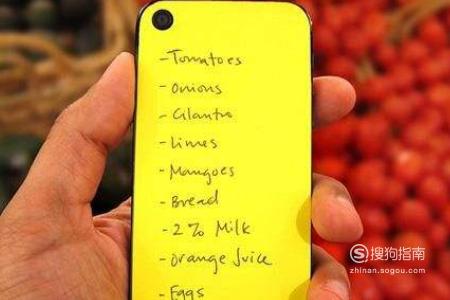 -Tomatoes
-Onions
-Cilantro
-Limes
-Mangoes
-Bread
-2% Milk
-Orange Juice
-Eggs
搜狗指南
zhinan.sogou.com